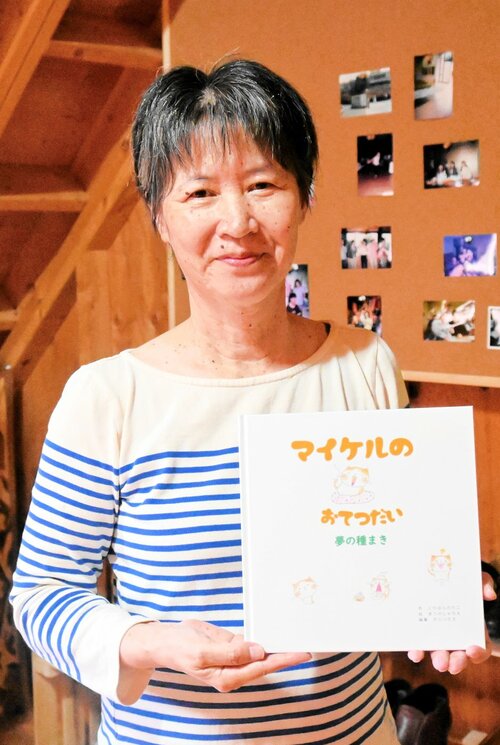 マイケルの
おてつだい
夢の種まき